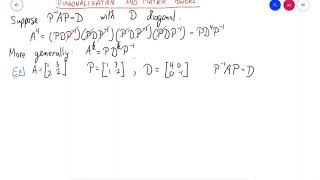 DIAGONALIZATION AND MATRIX POWERS
Suppose P⁻¹AP = D with D diagonal.
A⁴ = (PDP⁻¹)(PDP⁻¹)(PDP⁻¹)(PDP⁻¹) = PD⁴P⁻¹
More generally: Aᵏ = PDᵏP⁻¹
Ex) A = [1 3; 2 2] P = [1 3; 1 -2], D = [4 0; 0 -1] P⁻¹AP = D